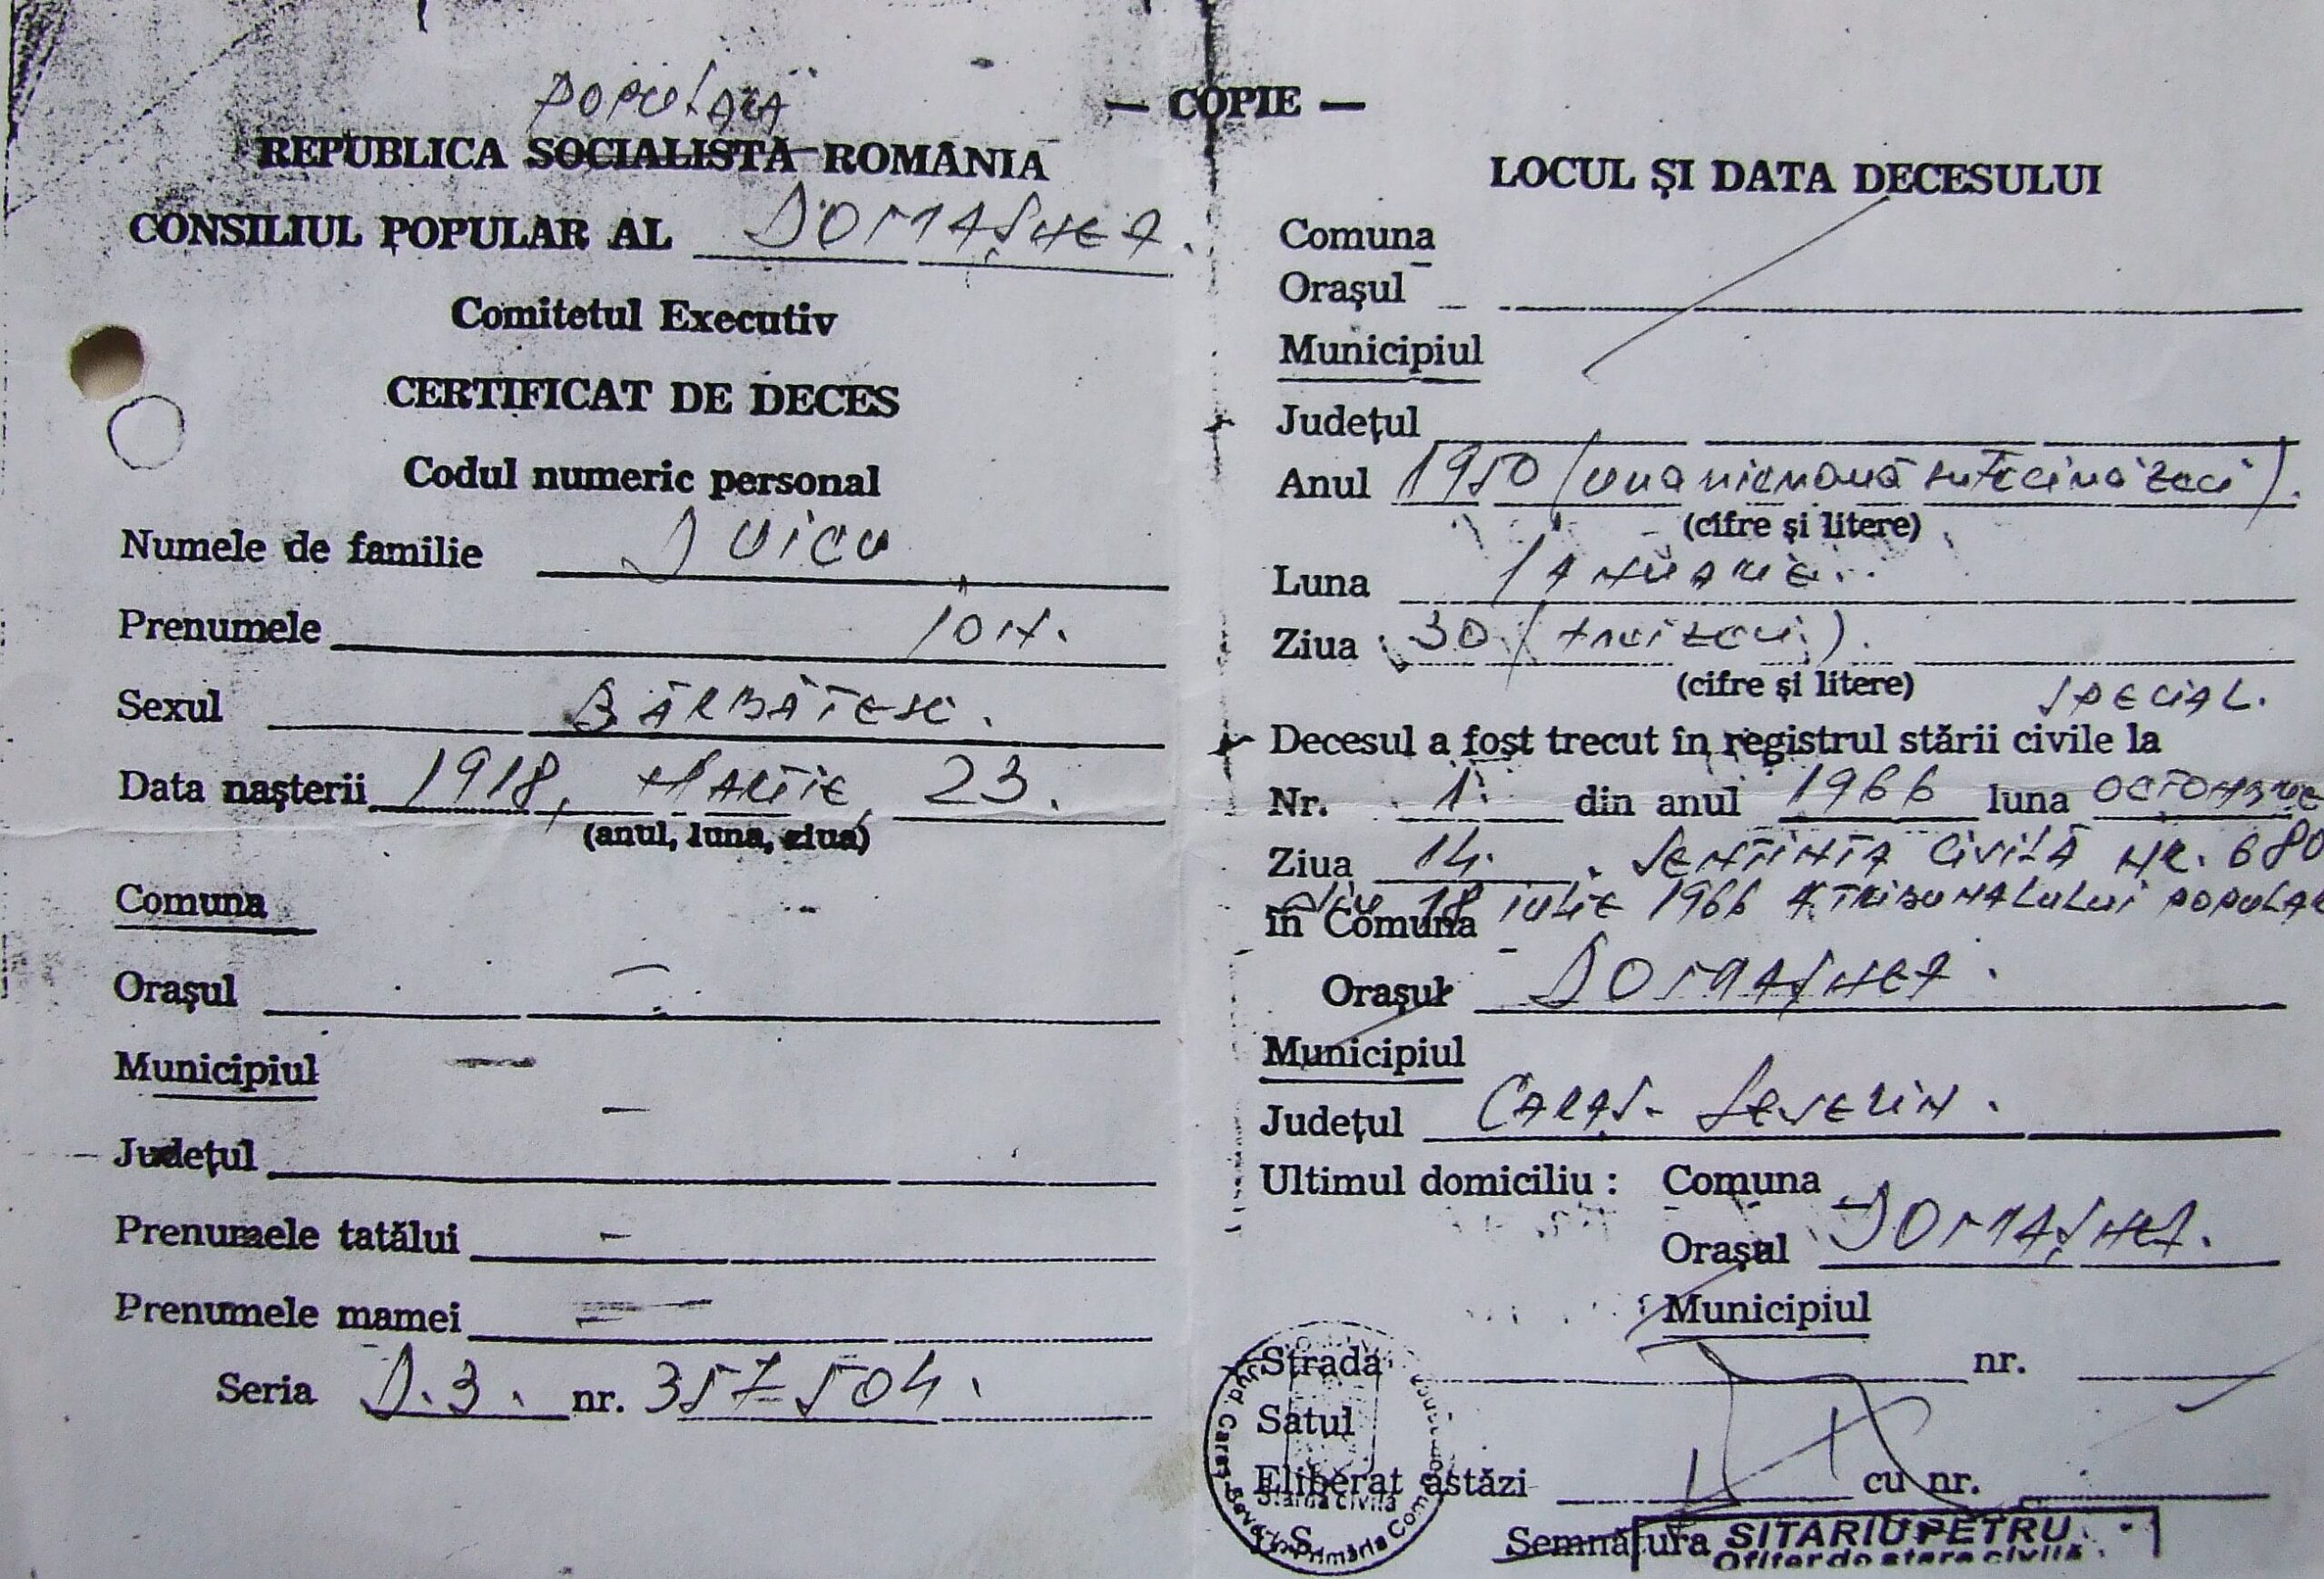 — COPIE —
POPULARĂ
REPUBLICA SOCIALISTA ROMÂNIA
CONSILIUL POPULAR AL DOMAȘNEA.
Comitetul Executiv
CERTIFICAT DE DECES
Codul numeric personal
Numele de familie DUICU
Prenumele ION.
Sexul BĂRBĂTESC.
Data naşterii 1918, MARTIE, 23.
(anul, luna, ziua)
Comuna -
Oraşul -
Municipiul -
Judeţul -
Prenumele tatălui -
Prenumele mamei -
Seria D.3. nr. 357504.
LOCUL ŞI DATA DECESULUI
Comuna
Oraşul
Municipiul
Judeţul
Anul 1950 (una mie nouă sute cincizeci).
(cifre şi litere)
Luna IANUARIE.
Ziua 30 (treizeci).
(cifre şi litere)
SPECIAL.
Decesul a fost trecut în registrul stării civile la
Nr. 1. din anul 1966 luna OCTOMBRIE
Ziua 14. SENTINTA CIVILĂ NR. 680
din 18 IULIE 1966 A TRIBUNALULUI POPULAR
în Comuna
Oraşul DOMAȘNEA.
Municipiul
Judeţul CARAȘ-SEVERIN.
Ultimul domiciliu : Comuna
Oraşul DOMAȘNEA.
Municipiul
Strada nr.
Satul
Eliberat astăzi cu nr.
L. S.
Semnătura SITARIU PETRU
Ofiţer de stare civilă
Jud. Caraş-Severin Primăria Com.
Starea civilă